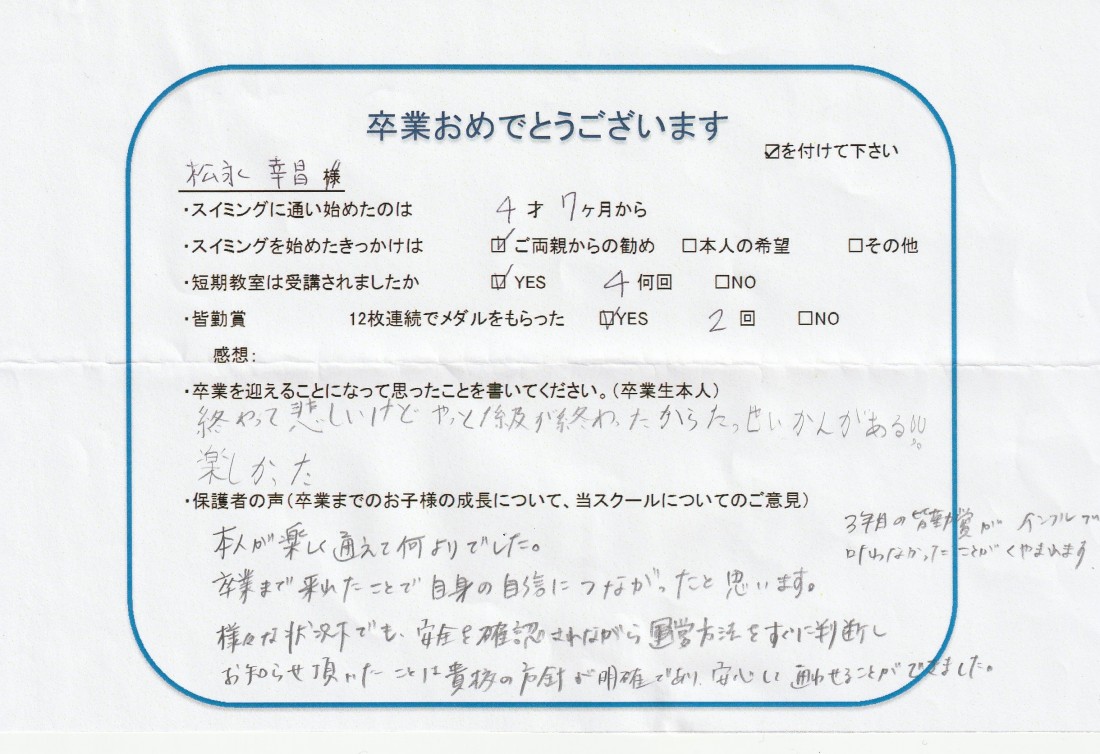 卒業おめでとうございます
☑を付けて下さい
松永 幸昌 様
・スイミングに通い始めたのは 4 才 7ヶ月から
・スイミングを始めたきっかけは ☑ご両親からの勧め □本人の希望 □その他
・短期教室は受講されましたか ☑YES 4 何回 □NO
・皆勤賞 12枚連続でメダルをもらった ☑YES 2 回 □NO
感想:
・卒業を迎えることになって思ったことを書いてください。(卒業生本人)
終わって悲しいけど やっと1級が終わったからたっせいかんがある!!
楽しかった
・保護者の声(卒業までのお子様の成長について、当スクールについてのご意見)
本人が楽しく通えて何よりでした。
卒業まで来れたことで自身の自信につながったと思います。
様々な状況下でも、安全を確認されながら運営方法をすぐに判断し
お知らせ頂いたことは貴校の方針が明確であり、安心して通わせることができました。
3年目の皆勤賞が インフルで
叶わなかったことがくやまれます